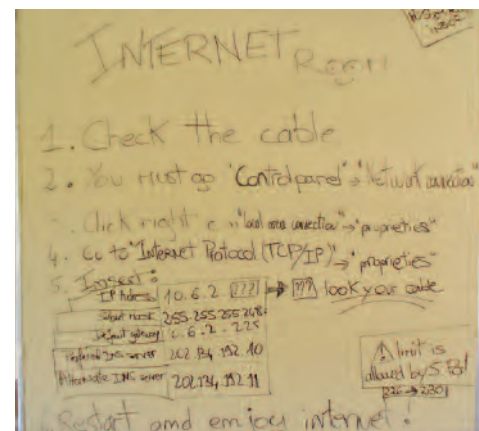 INTERNET Room
1. Check the cable
2. You must go "Control panel" → "Network connection"
3. Click right "local area connection" → "proprieties"
4. Go to "Internet Protocol (TCP/IP)" → "proprieties"
5. Insert:
IP Address 10.6.2.??? → ??? look your cable
Subnet mask 255.255.255.248
Default gateway 10.6.2.225
Preferred DNS server 202.134.192.10
Alternate DNS server 202.134.192.11
⚠ limit is
allowed by 5. For
226 → 230
Restart and enjoy internet!